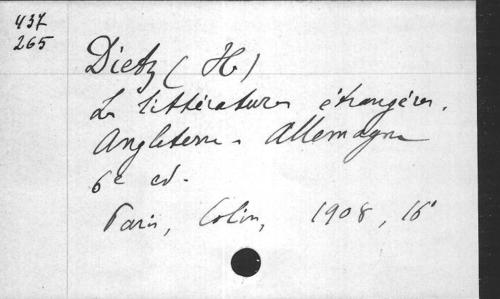 437
265
Dietz (H)
Les littératures étrangères.
Angleterre - Allemagne
6e ed.
Paris, Colin, 1908, 16°